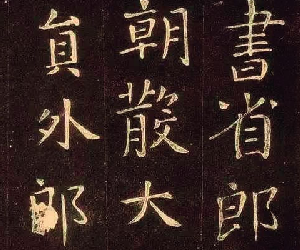 書省郎
朝散大
員外郎